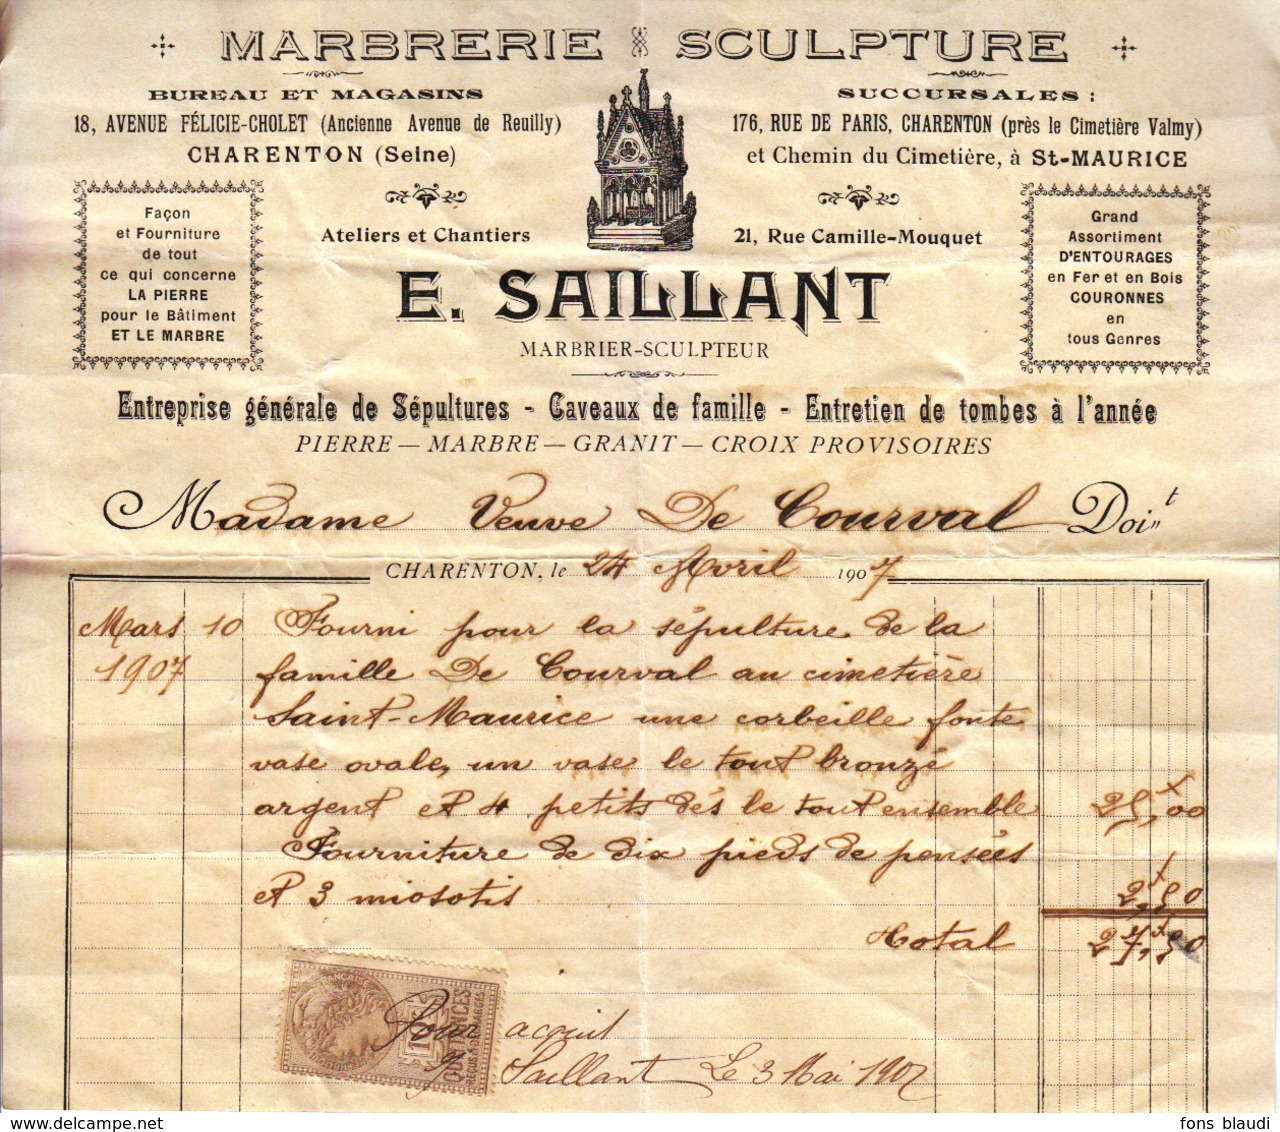 MARBRERIE SCULPTURE
BUREAU ET MAGASINS
18, AVENUE FÉLICIE-CHOLET (Ancienne Avenue de Reuilly)
CHARENTON (Seine)
SUCCURSALES :
176, RUE DE PARIS, CHARENTON (près le Cimetière Valmy)
et Chemin du Cimetière, à St-MAURICE
Façon
et Fourniture
de tout
ce qui concerne
LA PIERRE
pour le Bâtiment
ET LE MARBRE
Ateliers et Chantiers
21, Rue Camille-Mouquet
Grand
Assortiment
D'ENTOURAGES
en Fer et en Bois
COURONNES
en
tous Genres
E. SAILLANT
MARBRIER-SCULPTEUR
Entreprise générale de Sépultures - Caveaux de famille - Entretien de tombes à l'année
PIERRE — MARBRE — GRANIT — CROIX PROVISOIRES
Madame Veuve De Courval Doit
CHARENTON, le 24 Avril 1907
Mars 10 Fourni pour la sépulture de la
1907 famille De Courval au cimetière
Saint-Maurice une corbeille fonte
vase ovale, un vase le tout bronzé
argent et 4 petits dés le tout ensemble 25,00
Fourniture de dix pieds de pensées
et 3 miosotis 2,50
Total 27,50
QUITTANCES
REÇUS & DÉCHARGES
Pour acquit
Saillant Le 3 Mai 1907
fons blaudi